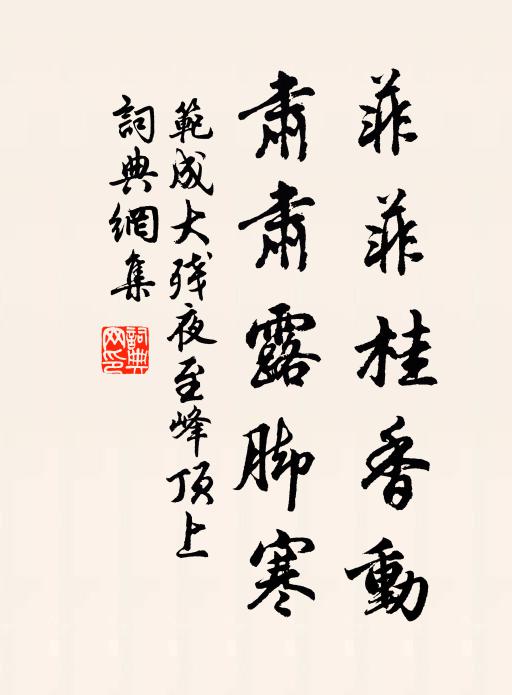 菲菲桂香動
肅肅露脚寒
範成大残夜至峰顶上
詞典網集
詞典网印